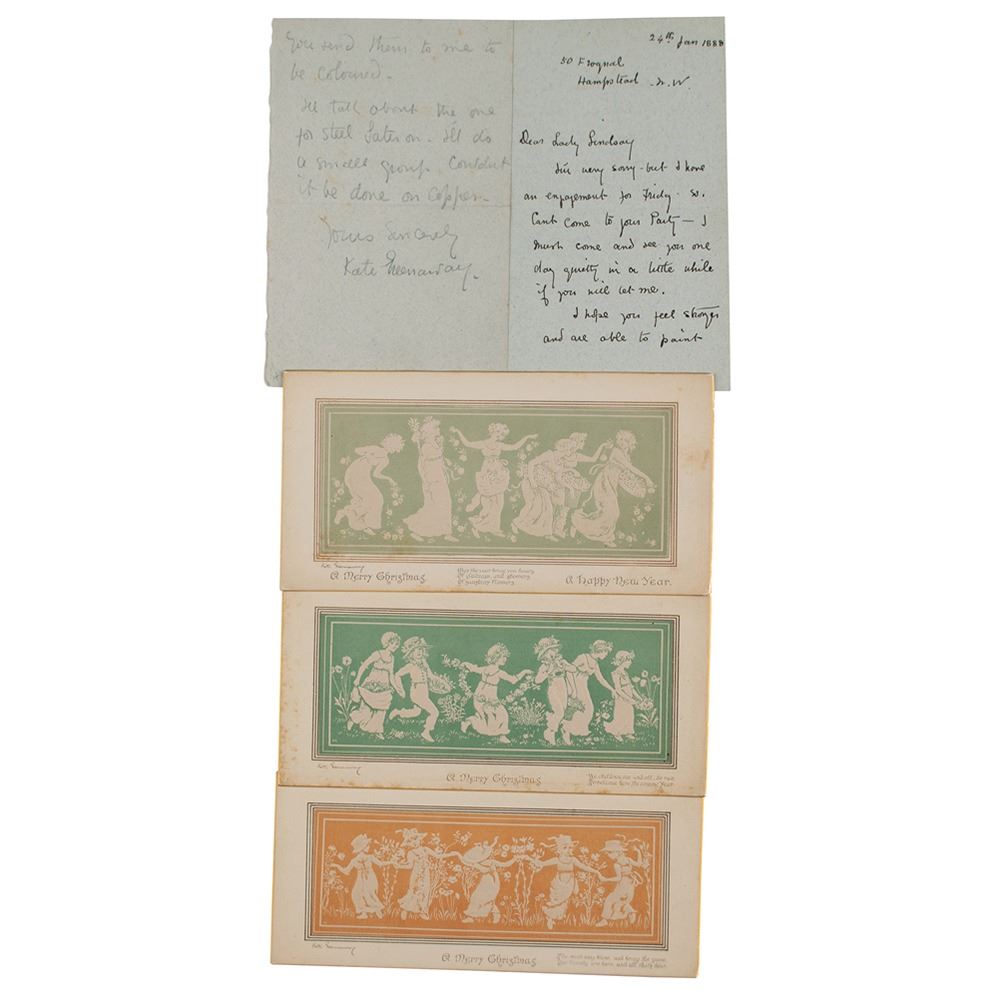 You send them to me to
be coloured.
I'll talk about the one
for steel later on. I'll do
a small group. Couldn't
it be done on Copper.
Yours Sincerely
Kate Greenaway.
24th Jan 1888
50 Frognal
Hampstead. N.W.
Dear Lady Lindsay
I'm very sorry but I have
an engagement for Friday so
Cant come to your Party — I
must come and see you one
day quietly in a little while
if you will let me.
I hope you feel stronger
and are able to paint
Kate Greenaway
A Merry Christmas
A Happy New Year.
Kate Greenaway
A Merry Christmas
Kate Greenaway
A Merry Christmas